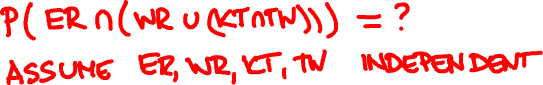 P(ER∩(WR∪(KT∩TW))) = ?
ASSUME ER, WR, KT, TW INDEPENDENT